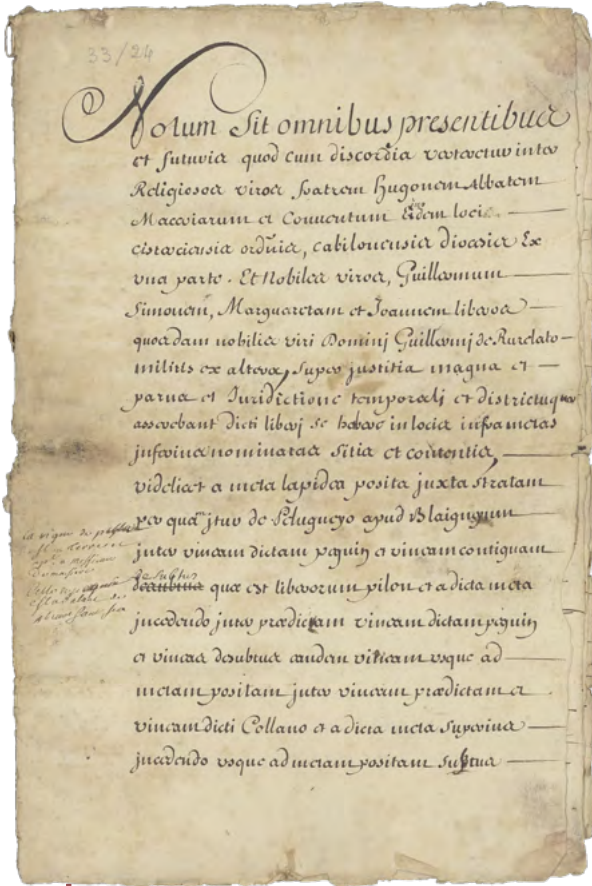 33/24
Notum Sit omnibus presentibus
et futuris quod cum discordia verteretur inter
Religiosos viros fratrem Hugonem Abbatem
Maceriarum et Conventum Eiusdem loci
cisterciensis ordinis, cabilonensis diocesis Ex
una parte. Et Nobiles viros, Guillermum
Simonem, Margaretam et Joannem liberos
quosdam nobilis viri Dominj Guillermj de Rurelato
militis ex altera, super justitia magna et
parva et Iuridictione temporalj et districtu que
asserebant dicti liberj se habere in locis infra metas
inferius nominatas sitis et contentis,
videlicet a meta lapidea posita juxta stratam
per quam jtur de apud
juter vineam dictam peguin et vineam contiguam
desubtus quæ est liberorum pilon et a dicta meta
jncedendo juter prædictam vineam dictam peguin
et vineas desubtus eandem vineam vsque ad
metam positam juter vineam prædictam et
vineam dicti Collano et a dicta meta superius
jncedendo vsque ad metam positam subtus
la vigne de